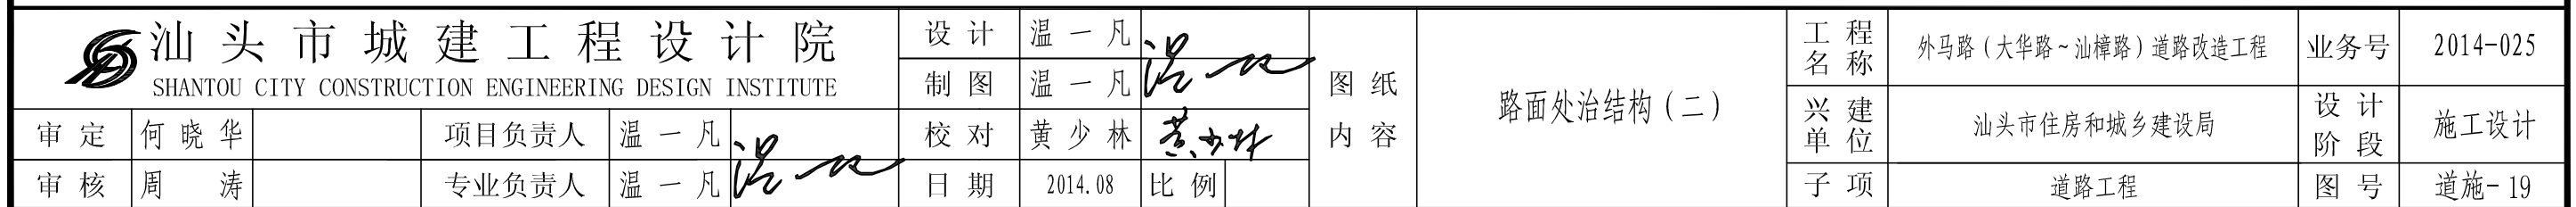 汕头市城建工程设计院
SHANTOU CITY CONSTRUCTION ENGINEERING DESIGN INSTITUTE
审定 何晓华 项目负责人 温一凡
审核 周涛 专业负责人 温一凡
设计 温一凡
制图 温一凡
校对 黄少林 黄少林
日期 2014.08 比例
图纸内容 路面处治结构(二)
工程名称 外马路(大华路~汕樟路)道路改造工程 业务号 2014-025
兴建单位 汕头市住房和城乡建设局 设计阶段 施工设计
子项 道路工程 图号 道施-19